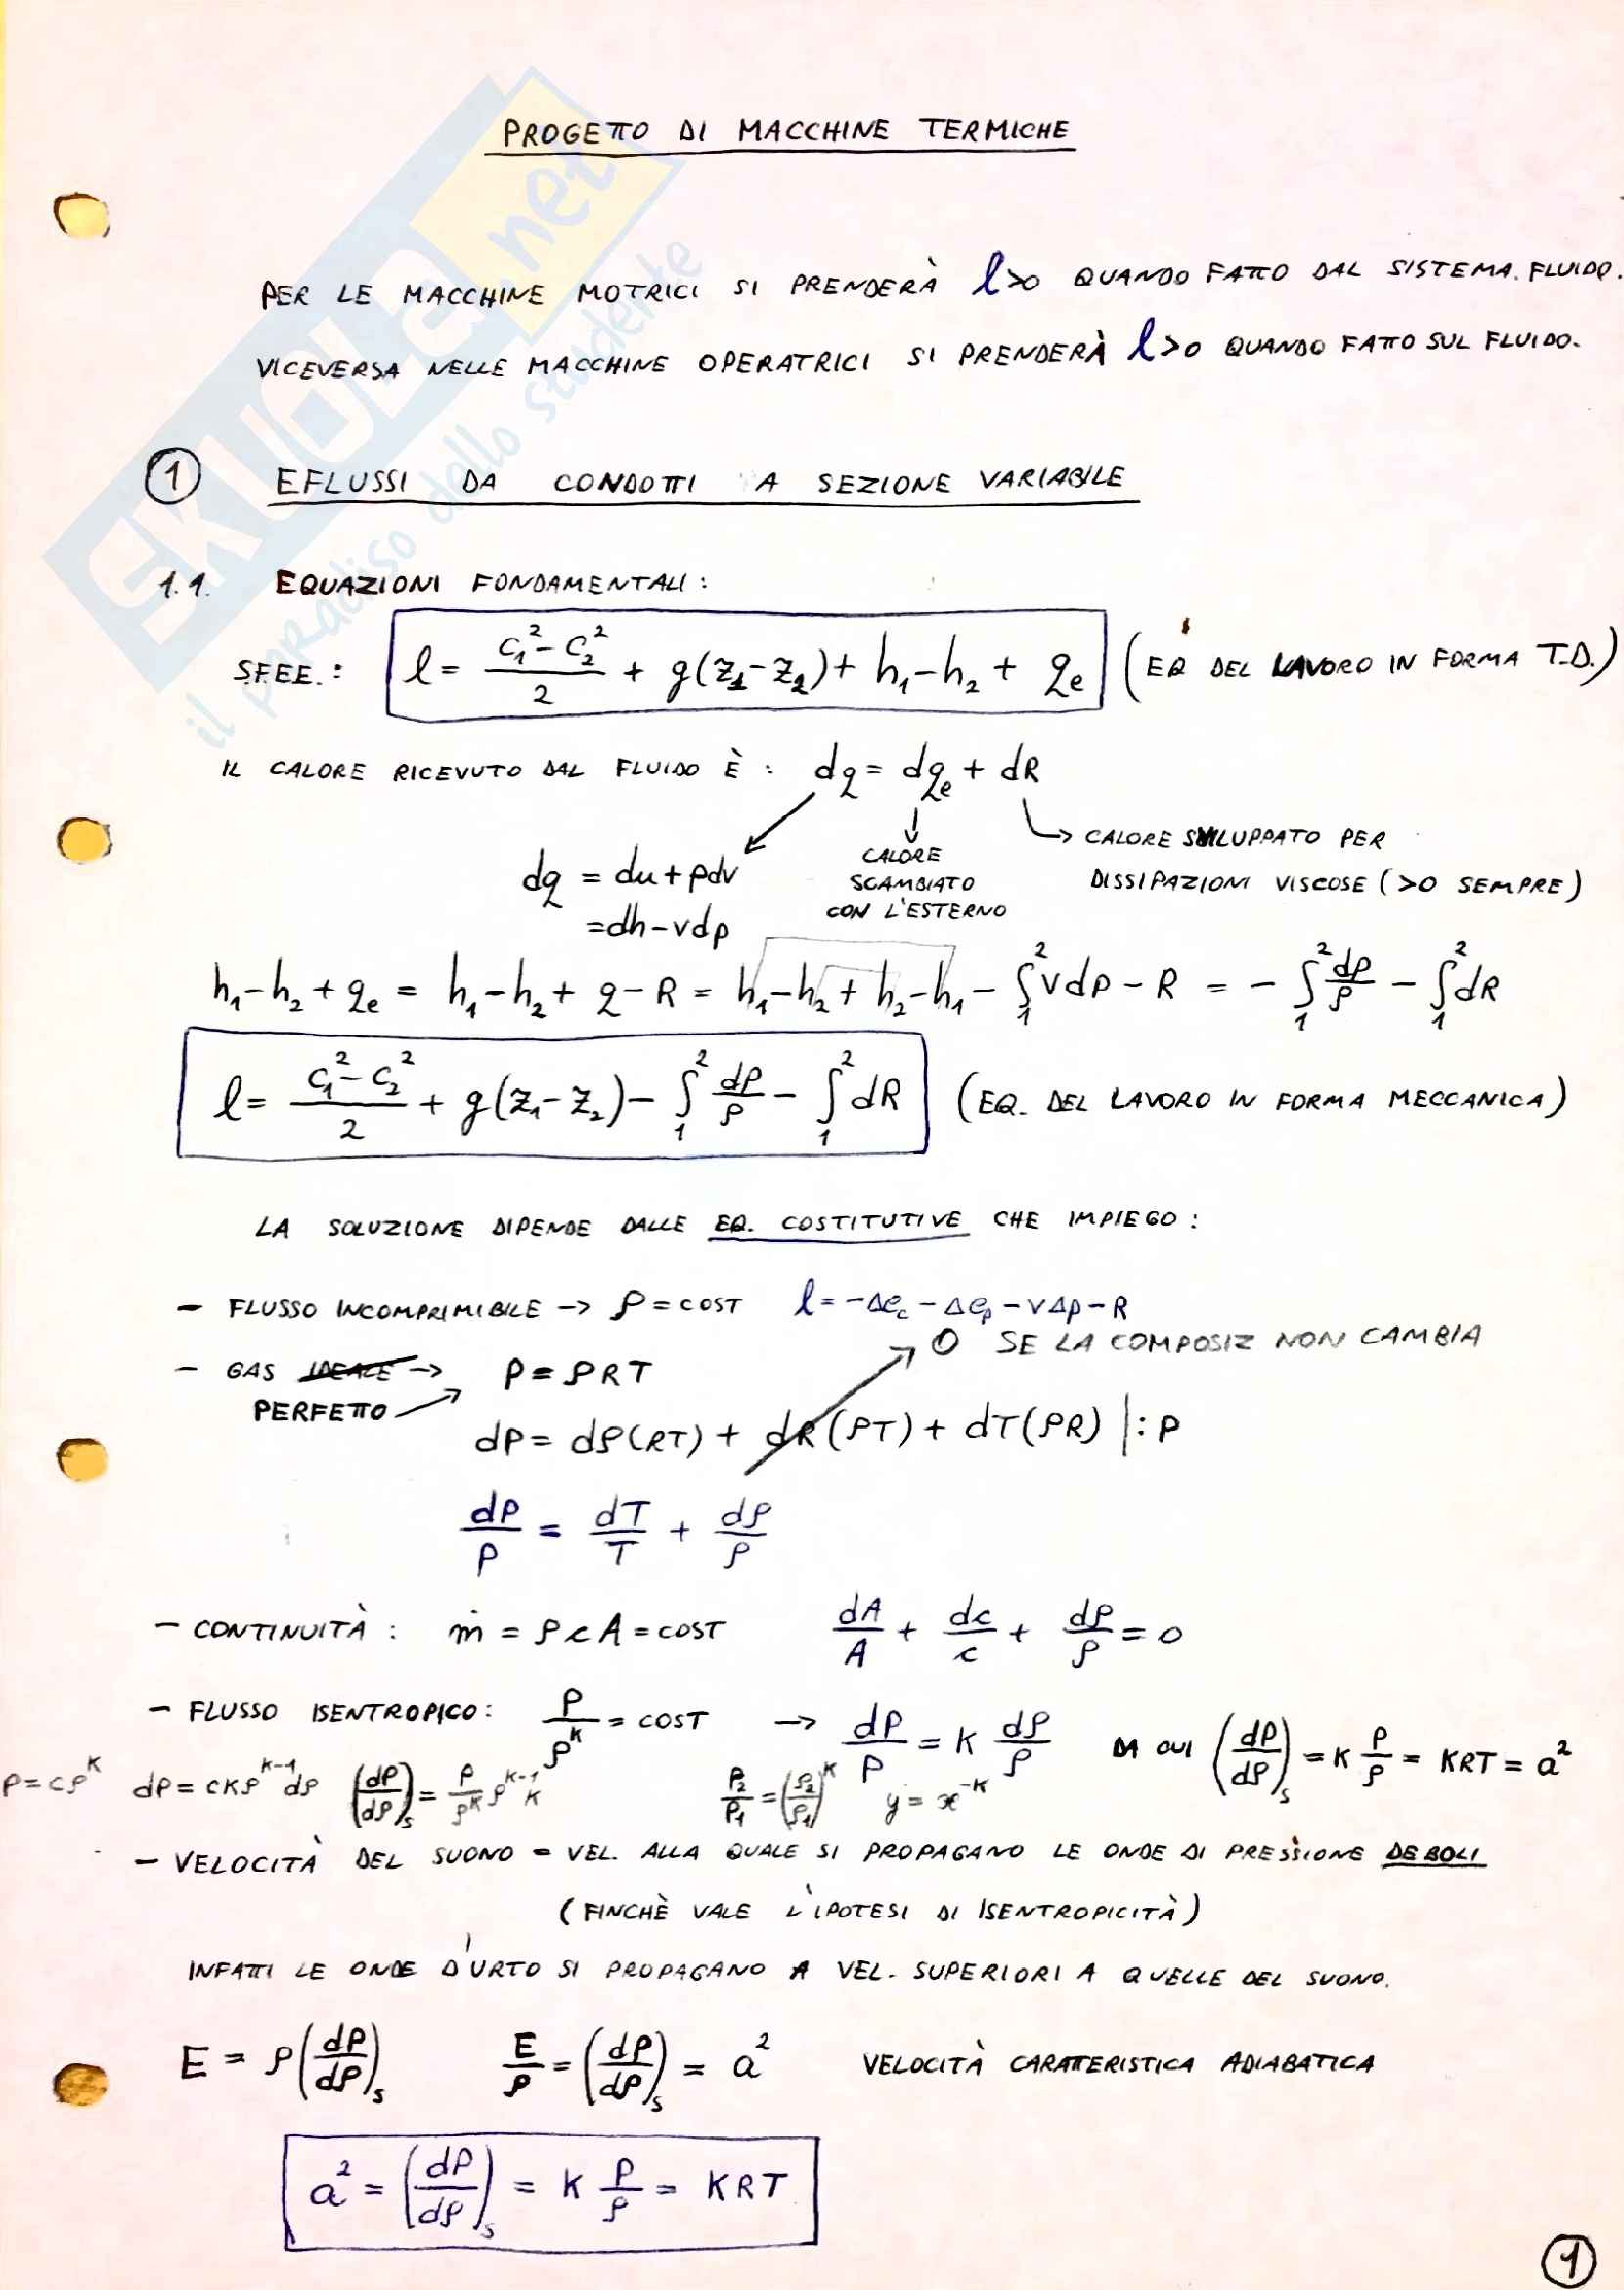 PROGETTO DI MACCHINE TERMICHE
PER LE MACCHINE MOTRICI SI PRENDERÀ l>0 QUANDO FATTO DAL SISTEMA. FLUIDO.
VICEVERSA NELLE MACCHINE OPERATRICI SI PRENDERÀ l>0 QUANDO FATTO SUL FLUIDO.
1 EFLUSSI DA CONDOTTI A SEZIONE VARIABILE
1.1. EQUAZIONI FONDAMENTALI:
S.F.E.E.: l = (c₁² - c₂²)/2 + g(z₁-z₂) + h₁-h₂ + qₑ (EQ DEL LAVORO IN FORMA T.D.)
IL CALORE RICEVUTO DAL FLUIDO È : dq = dqₑ + dR
dq = du + pdv
= dh - vdp
CALORE SCAMBIATO CON L'ESTERNO
→ CALORE SVILUPPATO PER
DISSIPAZIONI VISCOSE (>0 SEMPRE)
h₁-h₂ + qₑ = h₁-h₂ + q - R = h₁-h₂ + h₂-h₁ - ∫₁² vdp - R = - ∫₁² dp/ρ - ∫₁² dR
l = (c₁² - c₂²)/2 + g(z₁-z₂) - ∫₁² dp/ρ - ∫₁² dR (EQ. DEL LAVORO IN FORMA MECCANICA)
LA SOLUZIONE DIPENDE DALLE EQ. COSTITUTIVE CHE IMPIEGO :
- FLUSSO INCOMPRIMIBILE -> ρ = COST l = -Δe_c - Δe_p - vΔp - R
0 SE LA COMPOSIZ NON CAMBIA
- GAS IDEALE -> p = ρRT
PERFETTO
dp = dρ(RT) + dR(ρT) + dT(ρR) | : p
dp/p = dT/T + dρ/ρ
- CONTINUITÀ : ṁ = ρcA = COST dA/A + dc/c + dρ/ρ = 0
- FLUSSO ISENTROPICO: p/ρ^k = COST -> dp/p = k dρ/ρ DA CUI (dp/dρ)_s = k p/ρ = KRT = a²
p = cρ^k dp = ckρ^(k-1) dρ (dp/dρ)_s = p/ρ^k ρ^(k-1) k p₂/p₁ = (ρ₂/ρ₁)^k y = x^(-k)
- VELOCITÀ DEL SUONO = VEL. ALLA QUALE SI PROPAGANO LE ONDE DI PRESSIONE DEBOLI
(FINCHÈ VALE L'IPOTESI DI ISENTROPICITÀ)
INFATTI LE ONDE D'URTO SI PROPAGANO A VEL. SUPERIORI A QUELLE DEL SUONO.
E = ρ(dp/dρ)_s E/ρ = (dp/dρ)_s = a² VELOCITÀ CARATTERISTICA ADIABATICA
a² = (dp/dρ)_s = k p/ρ = KRT
1
SKUOLA.net
il paradiso dello studente